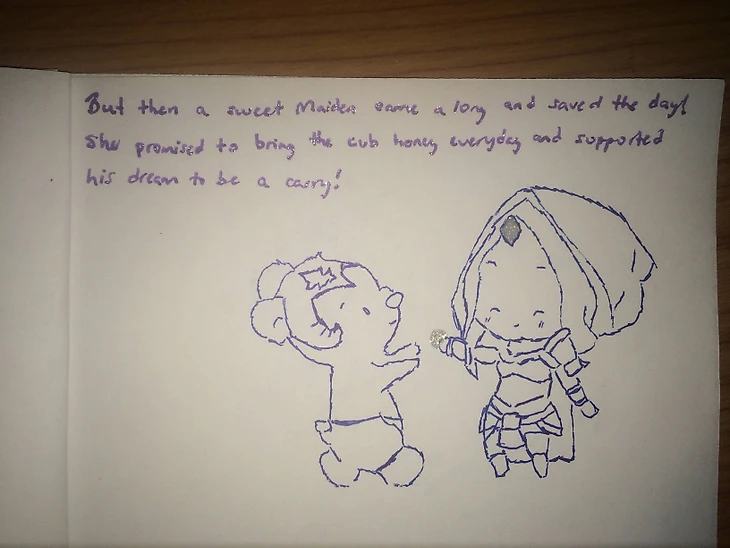 But then a sweet Maiden came a long and saved the day!
She promised to bring the cub honey everyday and supported
his dream to be a carry!